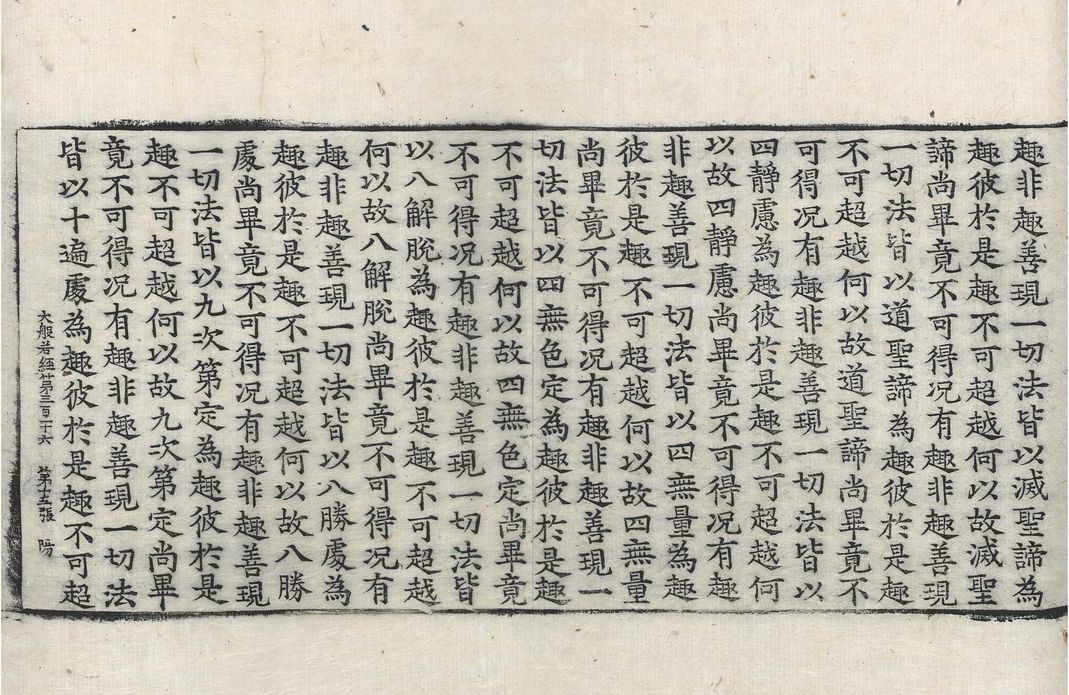 趣非趣善現一切法皆以滅聖諦為
趣彼於是趣不可超越何以故滅聖
諦尚畢竟不可得况有趣非趣善現
一切法皆以道聖諦為趣彼於是趣
不可超越何以故道聖諦尚畢竟不
可得况有趣非趣善現一切法皆以
四靜慮為趣彼於是趣不可超越何
以故四靜慮尚畢竟不可得况有趣
非趣善現一切法皆以四無量為趣
彼於是趣不可超越何以故四無量
尚畢竟不可得况有趣非趣善現一
切法皆以四無色定為趣彼於是趣
不可超越何以故四無色定尚畢竟
不可得况有趣非趣善現一切法皆
以八解脫為趣彼於是趣不可超越
何以故八解脫尚畢竟不可得况有
趣非趣善現一切法皆以八勝處為
趣彼於是趣不可超越何以故八勝
處尚畢竟不可得况有趣非趣善現
一切法皆以九次第定為趣彼於是
趣不可超越何以故九次第定尚畢
竟不可得况有趣非趣善現一切法
皆以十遍處為趣彼於是趣不可超
大般若經第三百十六 第十五張 陽